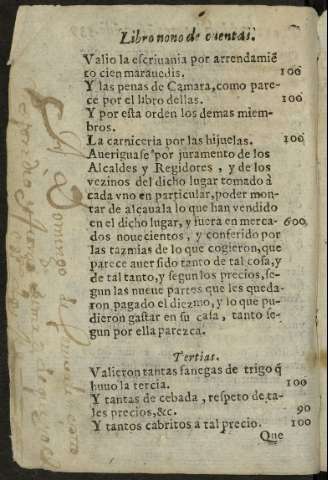 Libro nono de cuentas.
Valio la escriuania por arrendamiē
to cien marauedis. 100
Y las penas de Camara, como pare-
ce por el libro dellas. 100
Y por esta orden los demas miem-
bros.
La carniceria por las hijuelas. 100
Aueriguase por juramento de los
Alcaldes y Regidores, y de los
vezinos del dicho lugar tomado à
cada vno en particular, poder mon-
tar de alcauala lo que han vendido
en el dicho lugar, y fuera en merca- 600
dos nouecientos, y conferido por
las tazmias de lo que cogieron, que
parece auer sido tanto de tal cosa, y
de tal tanto, y segun los precios, se-
gun las nueue partes que les queda-
ron pagado el diezmo, y lo que pu-
dieron gastar en su casa, tanto se-
gun por ella parezca.
Tertias.
Valieron tantas fanegas de trigo q̄
huuo la tercia. 100
Y tantas de cebada, respeto de ta-
les precios, &c. 90
Y tantos cabritos a tal precio. 100
Que